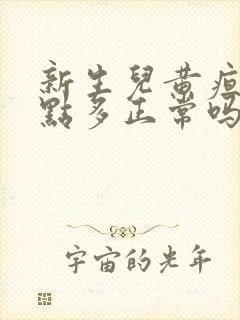 新生兒黃疸
點多正常吗
宇宙的光年